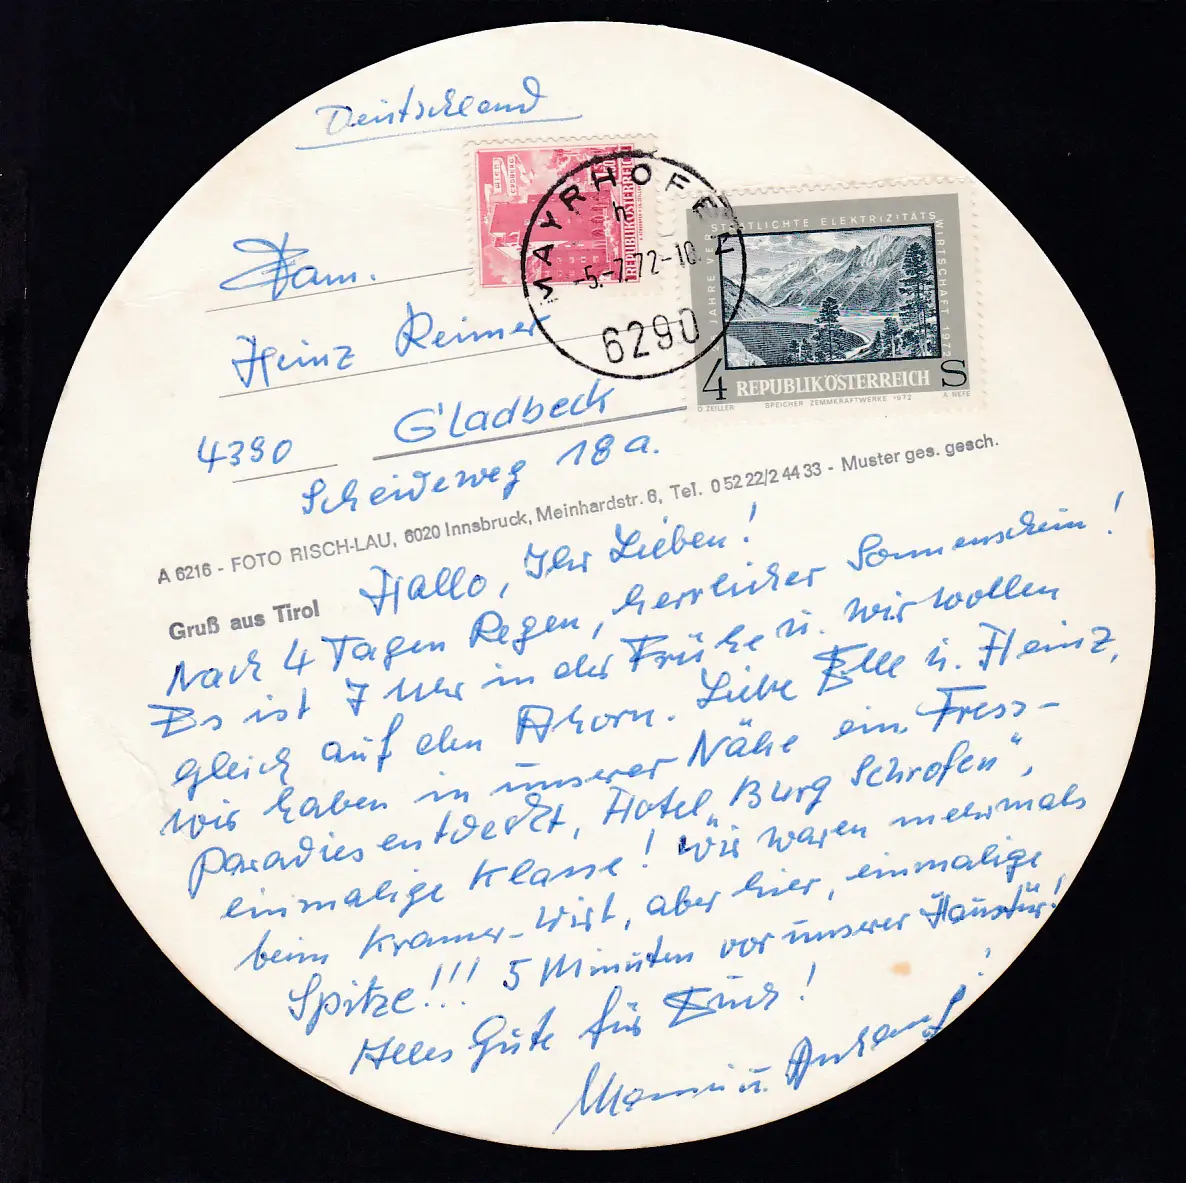 Deutschland
WIEN
ERDBERG
1.50
REPUBLIK ÖSTERREICH
MAYRHOFEN
h
-5.-7.72-10
6290
25 JAHRE VERSTAATLICHTE ELEKTRIZITÄTSWIRTSCHAFT 1972
4 REPUBLIK ÖSTERREICH S
O. ZEILLER SPEICHER ZEMMKRAFTWERKE 1972 A. NEFE
Fam.
Heinz Reimer
4390 Gladbeck
Scheideweg 18a.
A 6216 - FOTO RISCH-LAU, 6020 Innsbruck, Meinhardstr. 6, Tel. 0 52 22/2 44 33 - Muster ges. gesch.
Gruß aus Tirol
Hallo, Ihr Lieben!
Nach 4 Tagen Regen, herrlicher Sonnenschein!
Es ist 7 Uhr in der Frühe u. wir wollen
gleich auf den Ahorn. Liebe Elle u. Heinz,
wir haben in unserer Nähe ein Fress-
Paradies entdeckt, Hotel „Burg Schrofen",
einmalige Klasse! Wir waren mehrmals
beim Kramer-Wirt, aber hier, einmalige
Spitze!!! 5 Minuten vor unserer Haustür!
Alles Gute für Euch!